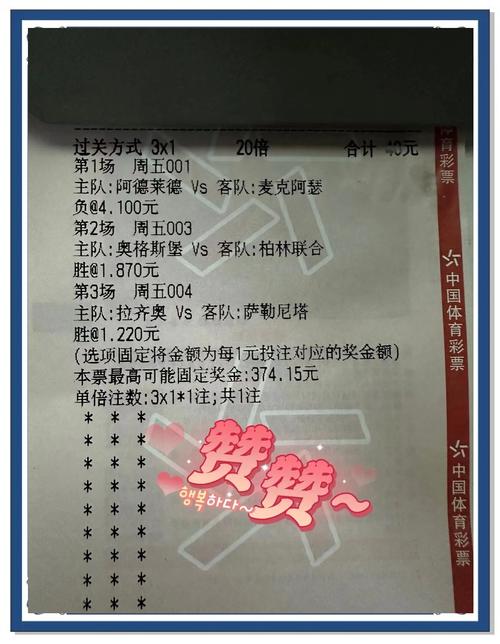 过关方式 3x1 20倍 合计 40元
第1场 周五001
主队:阿德莱德 Vs 客队:麦克阿瑟
负@4.100元
第2场 周五003
主队:奥格斯堡 Vs 客队:柏林联合
胜@1.870元
第3场 周五004
主队:拉齐奥 Vs 客队:萨勒尼塔
胜@1.220元
(选项固定将金额为每1元投注对应的奖金额)
本票最高可能固定奖金:374.15元
单倍注数:3x1*1注;共1注
* * *
* * *
* * *
* * *
* * *
* * *
* * *
* * *
* * *
赞赞~
행복하다~
育彩票
中国体育彩票
中国体育彩票